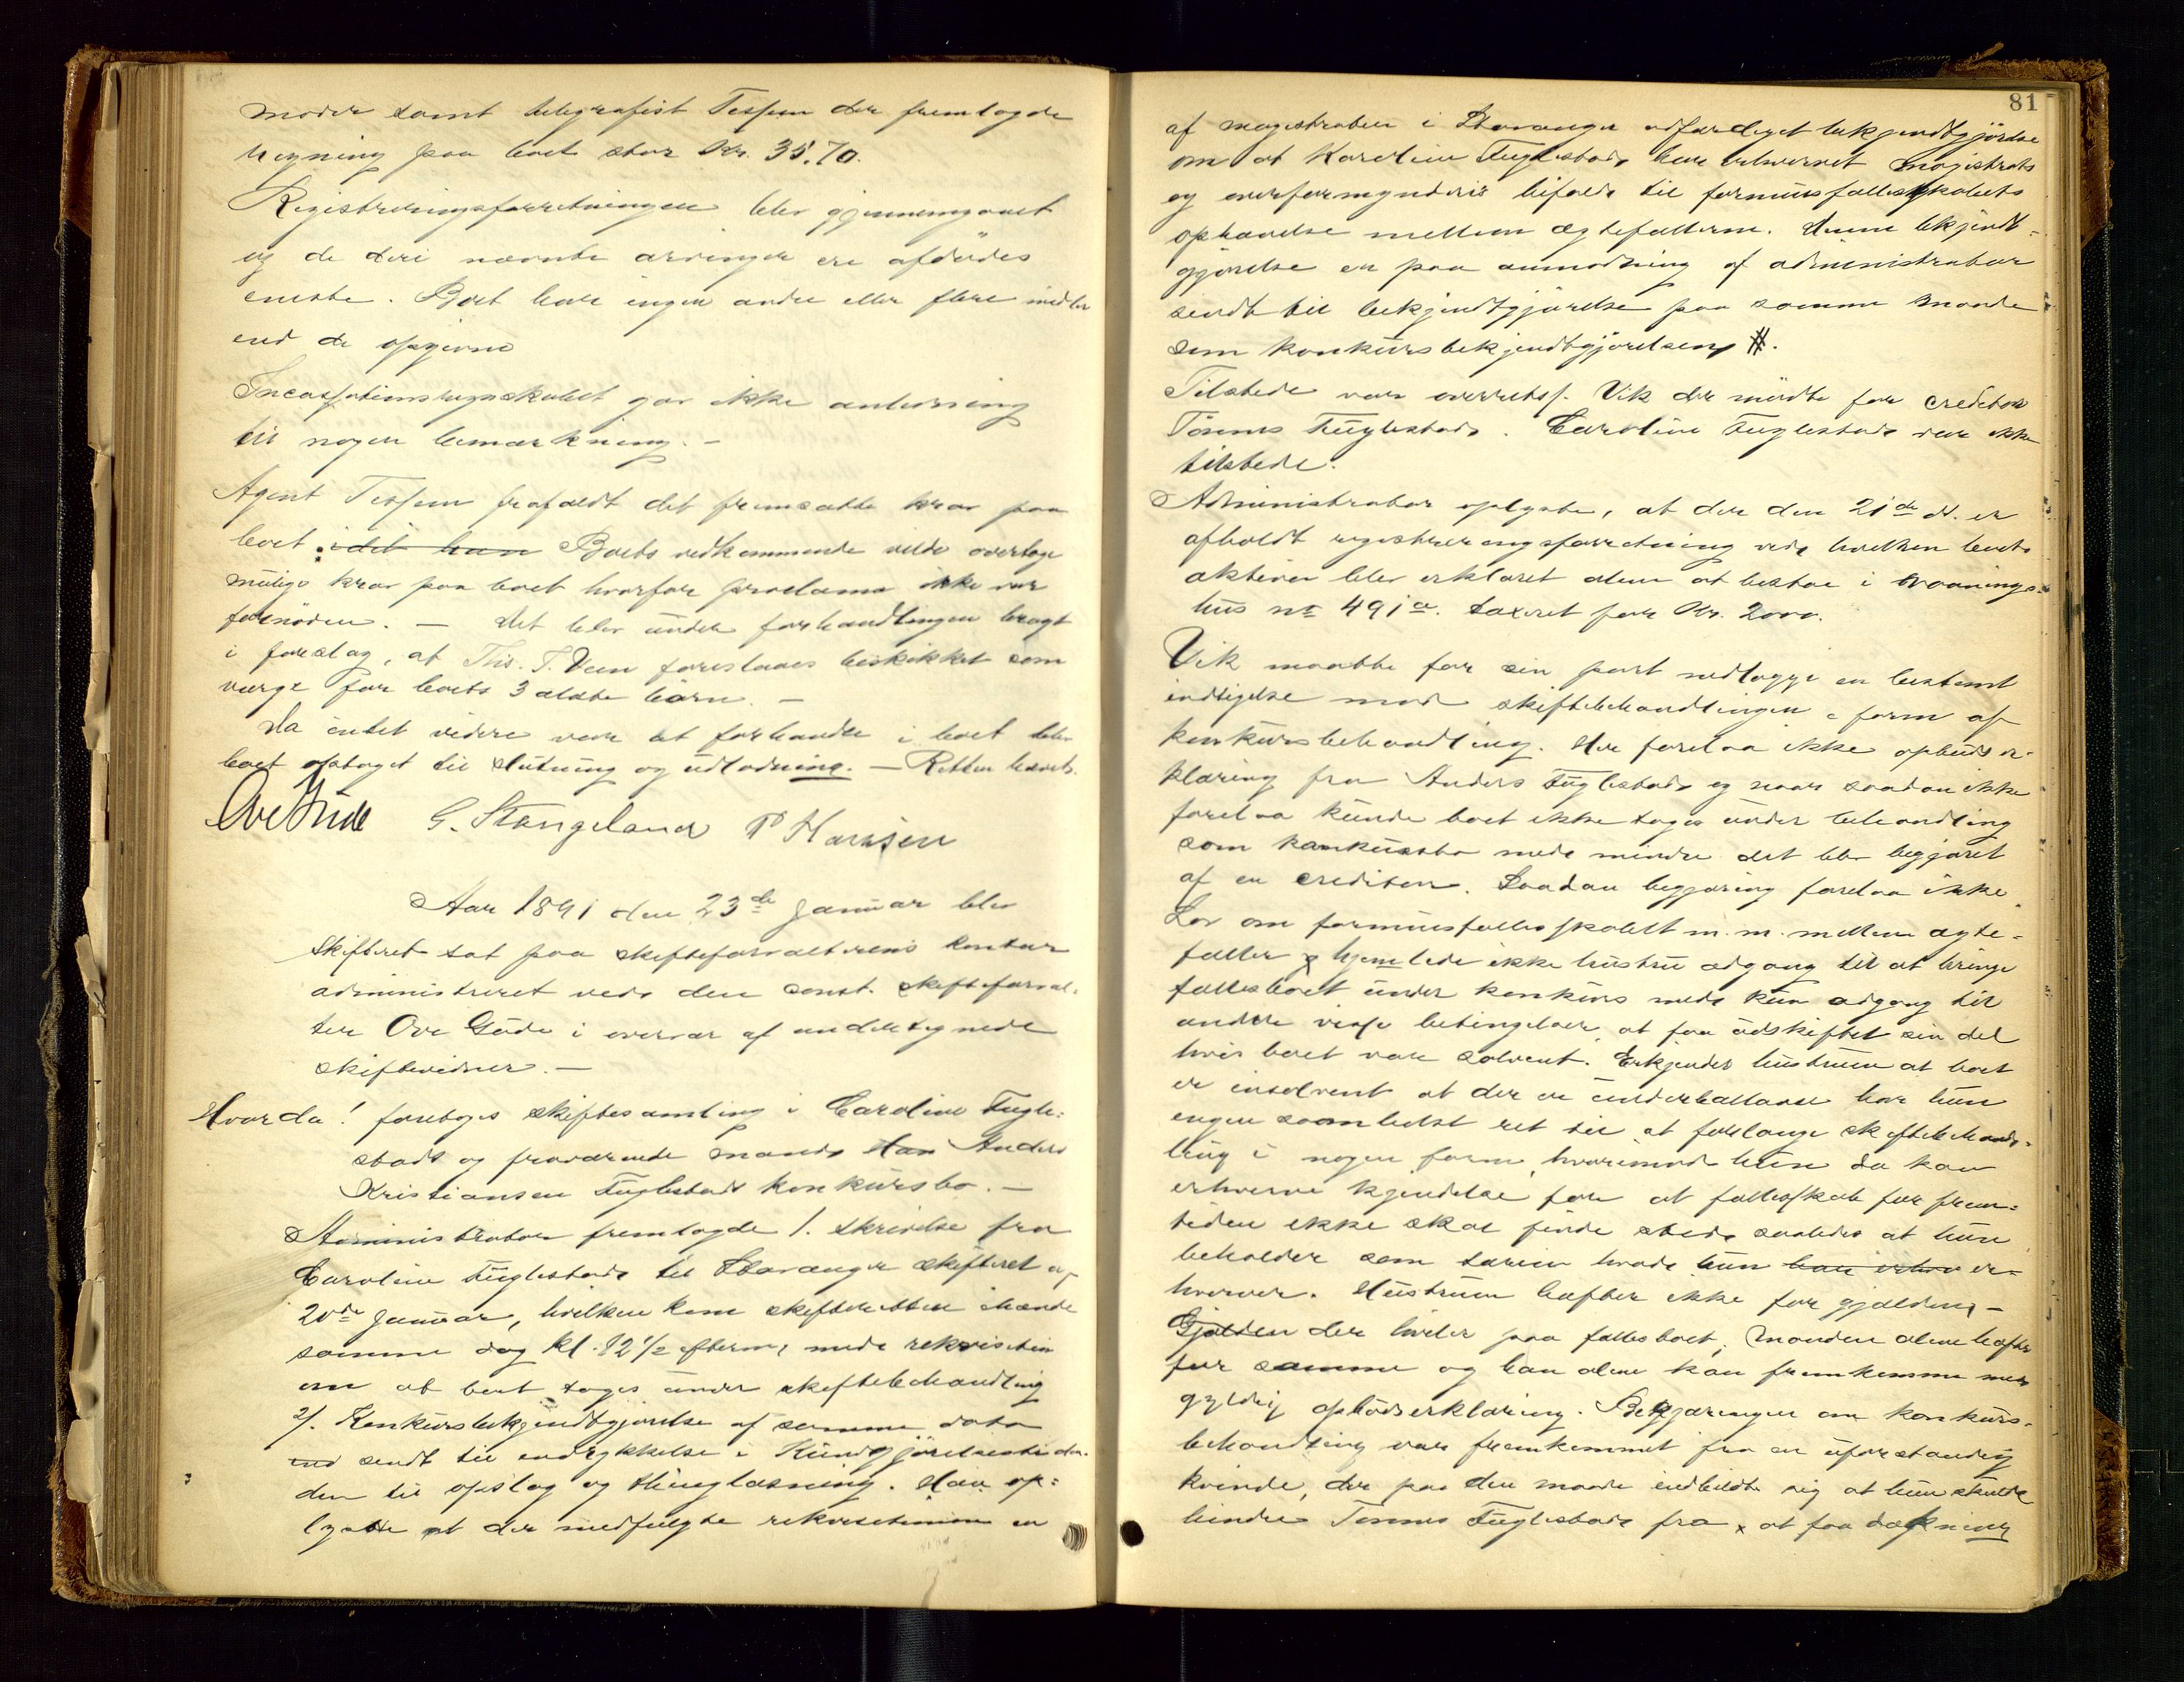 moder samt telegrafist Tessem der fremlagde
regning paa boet stor Kr. 35,70.
Registreringsforretningen blev gjennemgaaet
og de deri nævnte arvinger ere afdødes
eneste. Boet har ingen andre eller flere midler
end de opgivne
Incassationsregnskabet gav ikke anledning
til nogen bemærkning. –
Agent Tessem frafaldt det fremsatte krav paa
boet idet han Boets vedkommende vilde overtage
mulige krav paa boet hvorfor proclama ikke var
fornøden. – Det blev under forhandlingen bragt
i forslag, at Ths. T. Veen foreslaaes beskikket som
værge for boets 3 ældste børn. –
Da intet videre var at forhandle i boet blev
boet optaget til slutning og udlodning. – Retten hævet.
Ove Gude G. Stangeland P Hansen
Aar 1891 den 23de Januar blev
skifteret sat paa skifteforvalterens kontor
administreret ved den const. skifteforval-
ter Ove Gude i overvær af undertegnede
skiftevidner. –
Hvor da! foretoges skiftesamling i Caroline Fugle-
stads og fraværende mands Anders
Kristiansen Fuglestads konkursbo. –
Administrator fremlagde 1. skrivelse fra
Caroline Fuglestad til Stavanger skifteret af
20de Januar, hvilken kom skifteretten ihænde
samme dag kl. 12½ efterm, med rekvisition
om at boet toges under skiftebehandling
2/. Konkursbekjendtgjørelse af samme dato
sendt til indrykkelse i Kundgjørelsestiden-
den til opslag og thinglæsning. Han op=
lyste at der medfulgte rekvisitionen en
81
af magistraten i Stavanger udfærdiget bekjendtgjørelse
om at Karoline Fuglestad har erhvervet magistrats
og overformynderis bifald til formuesfællesskabets
ophævelse mellem ægtefællerne. Denne bekjendt-
gjørelse er paa anmodning af administrator
sendt til bekjendtgjørelse paa samme maade
som konkursbekjendtgjørelsen.
Tilstede var overretss. Vik der mødte for creditor
Tønnes Fuglestad. Caroline Fuglestad var ikke
tilstede.
Administrator oplyste, at der den 21de ds. er
afholdt registreringsforretning ved hvilken boets
aktiver blev erklæret alene at bestaa i vaanings-
hus no 491a. taxeret for Kr. 2000.
Vik maatte for sin part nedlægge en bestemt
indsigelse mod skiftebehandlingen i form af
konkursbehandling. Der forelaa ikke opbudser-
klæring fra Anders Fuglestad og naar saadan ikke
forelaa kunde boet ikke tages under behandling
som konkursbo med mindre det blev begjæret
af en creditor. Saadan begjæring forelaa ikke.
Lov om formuesfællesskabet m. m. mellem ægte-
fæller hjemlede ikke hustru adgang til at bringe
fællesboet under konkurs med kun adgang til
under visse betingelser at faa udskiftet sin del
hvis boet var solvent. Erkjender hustruen at boet
er insolvent at der er underballance har hun
ingen somhelst ret til at forlange skiftebehand-
ling i nogen form, hvorimod hun da kan
erhverve kjendelse for at fællesskab for frem-
tiden ikke skal finde sted saaledes at hun
beholder som særeie hvad hun kan erhve er-
hverver. Hustruen hæfter ikke for gjælden –
Gjælden der hviler paa fællesboet, manden alene hæfter
for samme og han alene kan fremkomme med
gyldig opbudserklæring. Begjæringen om konkurs-
behandling var fremkommet fra en uforstandig
kvinde, der paa den maade indbildte sig at hun skulde
hindre Tønnes Fuglestad fra at faa dækning